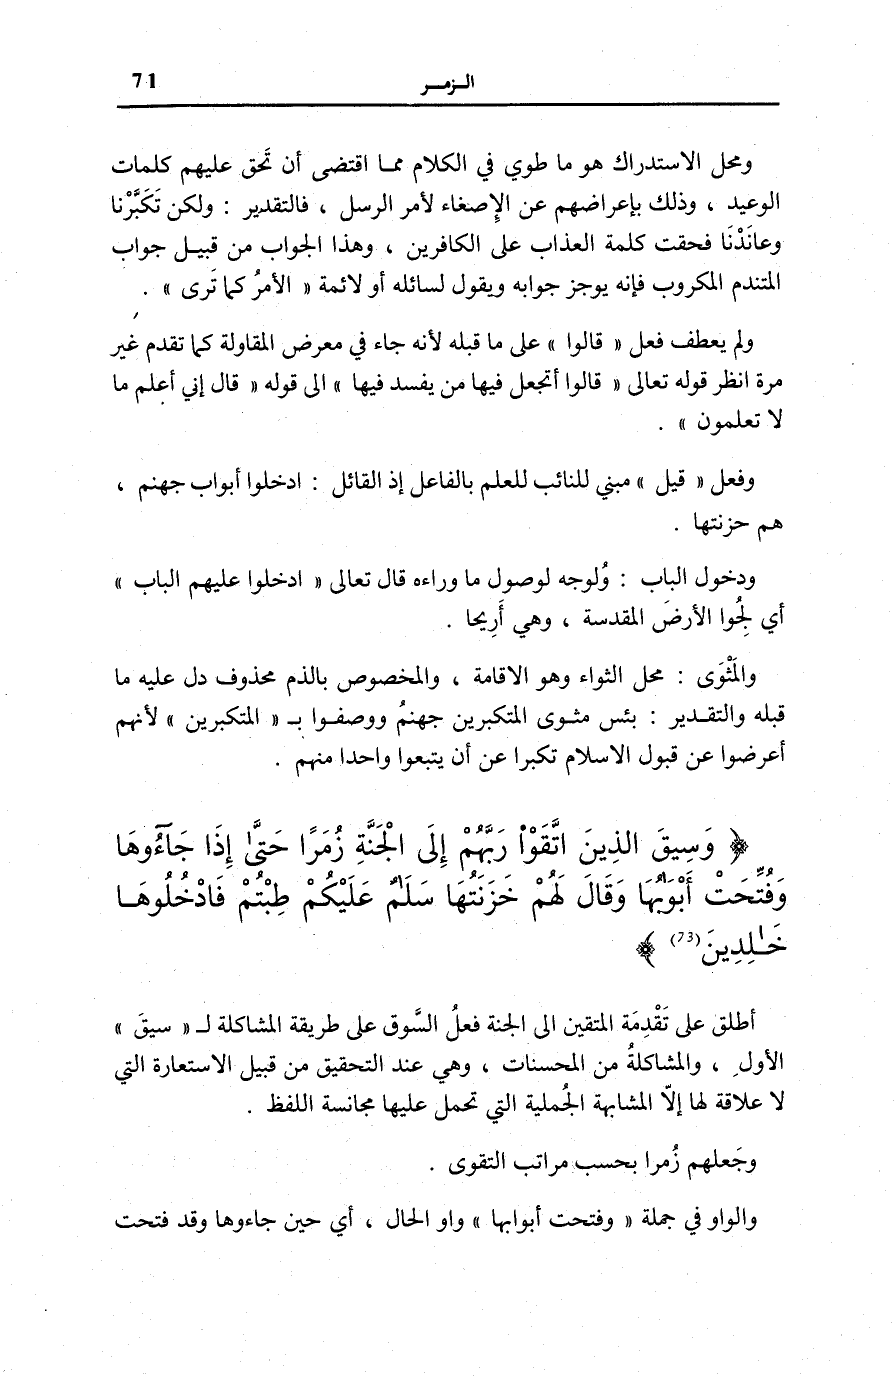 71 الـزمــر
ومحل الاستدراك هو ما طوي في الكلام مما اقتضى أن تَحق عليهم كلمات
الوعيد ، وذلك بإعراضهم عن الإِصغاء لأمر الرسل ، فالتقدير : ولكن تَكَبَّرْنا
وعانَدْنَا فحقت كلمة العذاب على الكافرين ، وهذا الجواب من قبيـل جواب
المتندم المكروب فإنه يوجز جوابه ويقول لسائله أو لائمة « الأمرُ كما تَرى » .
ولم يعطف فعل « قالوا » على ما قبله لأنه جاء في معرض المقاولة كما تقدم غير
مرة انظر قوله تعالى « قالوا أتجعل فيها من يفسد فيها » الى قوله « قال إني أعلم ما
لا تعلمون » .
وفعل « قيل » مبني للنائب للعلم بالفاعل إذ القائل : ادخلوا أبواب جهنم ،
هم حزنتها .
ودخول الباب : وُلوجه لوصول ما وراءه قال تعالى « ادخلوا عليهم الباب »
أي لِجُوا الأرضَ المقدسة ، وهي أَرِيحا .
والمَثْوَى : محل الثواء وهو الاقامة ، والمخصوص بالذم محذوف دل عليه ما
قبله والتقـدير : بئس مثـوى المتكبرين جهنمُ ووصفـوا بـ « المتكبرين » لأنهم
أعرضوا عن قبول الاسلام تكبرا عن أن يتبعوا واحدا منهم .
﴿ وَسِيقَ الذِينَ اتَّقَوْاْ رَبَّهُمْ إِلَى الْجَنَّةِ زُمَرًا حَتَّىٰ إِذَا جَآءُوهَا
وَفُتِّحَتْ أَبْوَٰبُهَا وَقَالَ لَهُمْ خَزَنَتُهَا سَلَٰمٌ عَلَيْكُمْ طِبْتُمْ فَادْخُلُوهَـا
خَـٰلِدِينَ (73) ﴾
أطلق على تَقْدِمَة المتقين الى الجنة فعلُ السَّوق على طريقة المشاكلة لـ « سيقَ »
الأول ، والمشاكلةُ من المحسنات ، وهي عند التحقيق من قبيل الاستعارة التي
لا علاقة لها إلاّ المشابهة الجُملية التي تحمل عليها مجانسة اللفظ .
وجَعلهم زُمرا بحسب مراتب التقوى .
والواو في جملة « وفتحت أبوابها » واو الحال ، أي حين جاءوها وقد فتحت